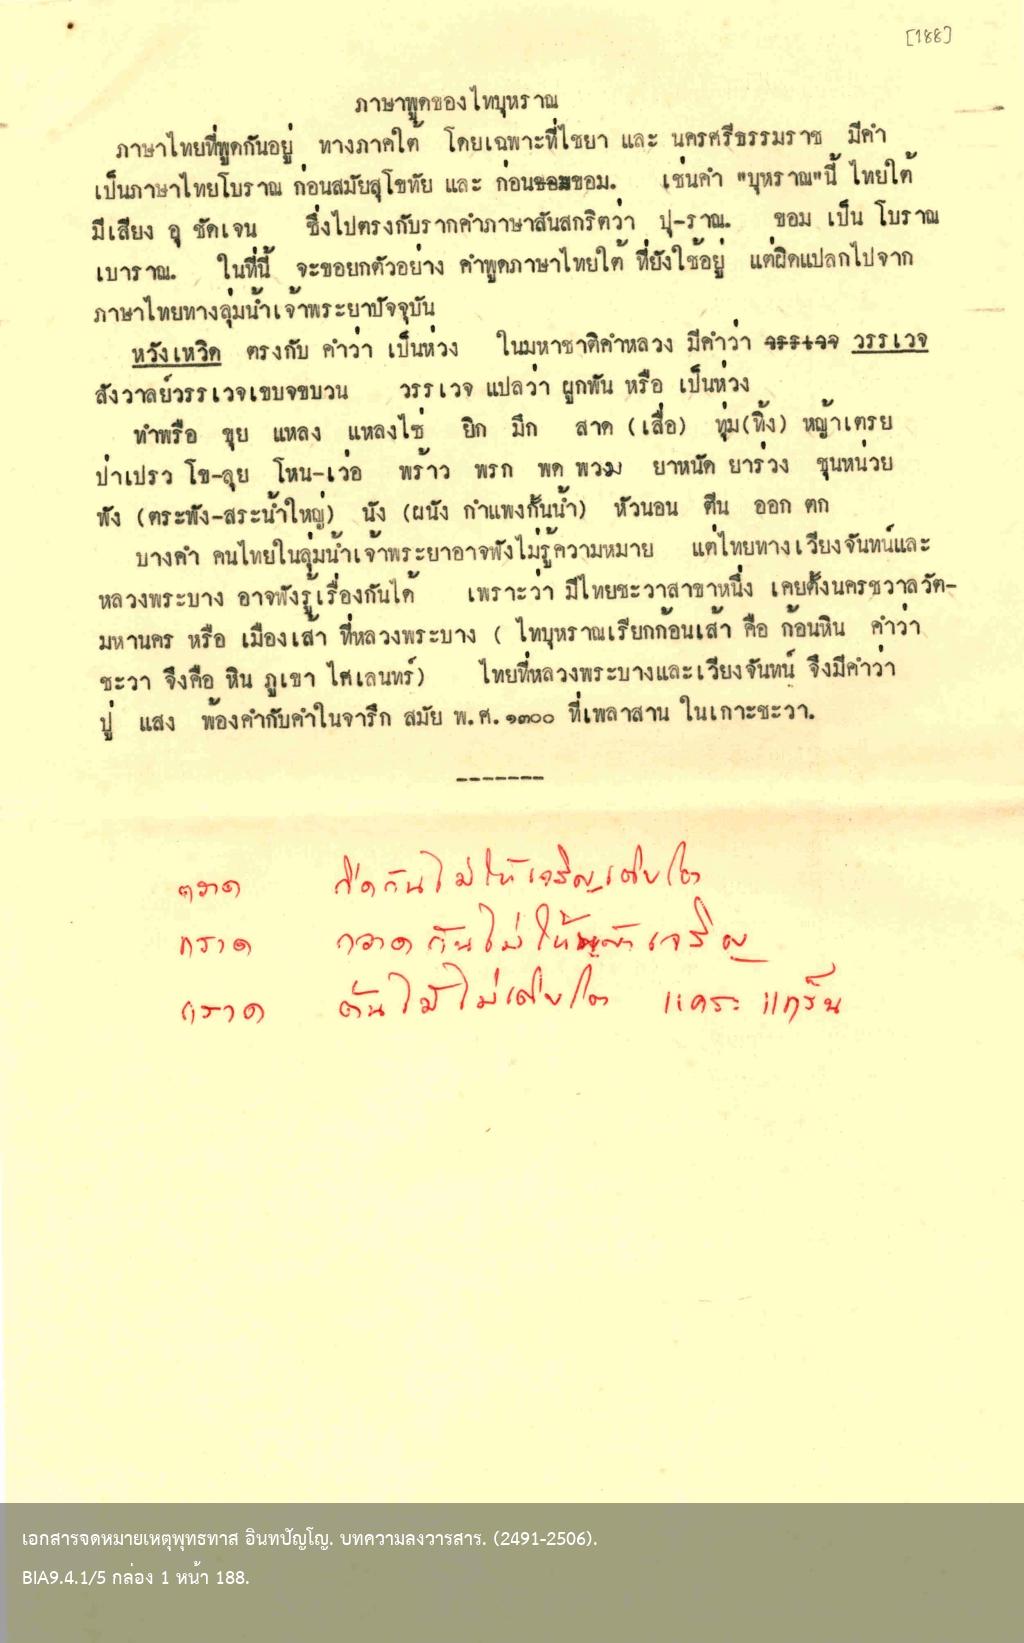 [188]
ภาษาพูดของไทบุหราณ
ภาษาไทยที่พูดกันอยู่ ทางภาคใต้ โดยเฉพาะที่ไชยา และ นครศรีธรรมราช มีคำ
เป็นภาษาไทยโบราณ ก่อนสมัยสุโขทัย และ ก่อนขอมขอม. เช่นคำ "บุหราณ"นี้ ไทยใต้
มีเสียง อุ ชัดเจน ซึ่งไปตรงกับรากคำภาษาสันสกริตว่า ปุ-ราณ. ขอม เป็น โบราณ
เบาราณ. ในที่นี้ จะขอยกตัวอย่าง คำพูดภาษาไทยใต้ ที่ยังใช้อยู่ แต่ผิดแปลกไปจาก
ภาษาไทยทางลุ่มน้ำเจ้าพระยาปัจจุบัน
หวังเหวิด ตรงกับ คำว่า เป็นห่วง ในมหาชาติคำหลวง มีคำว่า วรรเวจ วรรเวจ
สังวาลย์วรรเวจเขบจขบวน วรรเวจ แปลว่า ผูกพัน หรือ เป็นห่วง
ทำพรือ ขุย แหลง แหลงไซ่ ยิก มึก สาด (เสื่อ) ทุ่ม(ทิ้ง) หญ้าเตรย
ป่าเปรว โข-ลุย โหน-เว่อ พร้าว พรก พด พวมง ยาหนัด ยาร่วง ชุนหน่วย
พัง (ตระพัง-สระน้ำใหญ่) นัง (ผนัง กำแพงกั้นน้ำ) หัวนอน ตีน ออก ตก
บางคำ คนไทยในลุ่มน้ำเจ้าพระยาอาจพังไม่รู้ความหมาย แต่ไทยทางเวียงจันทน์และ
หลวงพระบาง อาจพังรู้เรื่องกันได้ เพราะว่า มีไทยชะวาสาขาหนึ่ง เคยตั้งนครชวาลวัต-
มหานคร หรือ เมืองเส้า ที่หลวงพระบาง ( ไทบุหราณเรียกก้อนเส้า คือ ก้อนหิน คำว่า
ชะวา จึงคือ หิน ภูเขา ไศเลนทร์) ไทยที่หลวงพระบางและเวียงจันทน์ จึงมีคำว่า
ปู่ แสง พ้องคำกับคำในจารึก สมัย พ.ศ.๑๓๐๐ ที่เพลาสาน ในเกาะชะวา.
-------
กีดกันไม่ให้เจริญเติบโต
กราด กวาดกันไม่ให้ เจริญ
แกราด ต้นไม้ไม่เติบโต แคระแกร็น
เอกสารจดหมายเหตุพุทธทาส อินทปัญโญ. บทความลงวารสาร. (2491-2506).
BIA9.4.1/5 กล่อง 1 หน้า 188.